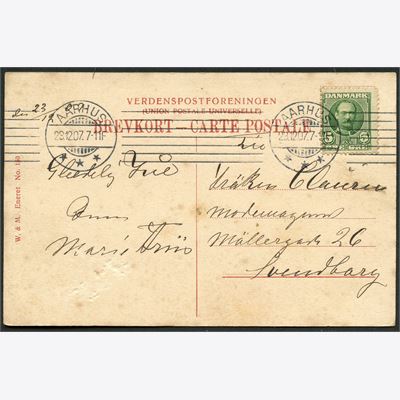 VERDENSPOSTFORENINGEN
(UNION POSTALE UNIVERSELLE)
BREVKORT – CARTE POSTALE
DANMARK
5 5
ØRE
AARHUS
23.12.07.7-11F
AARHUS
23.12.07.7-11F
Glædelig Jul
Marie Friis
Til
Frøken
Modemagasin
Möllergade 26
Svendborg
W. & M. Eneret No. 150